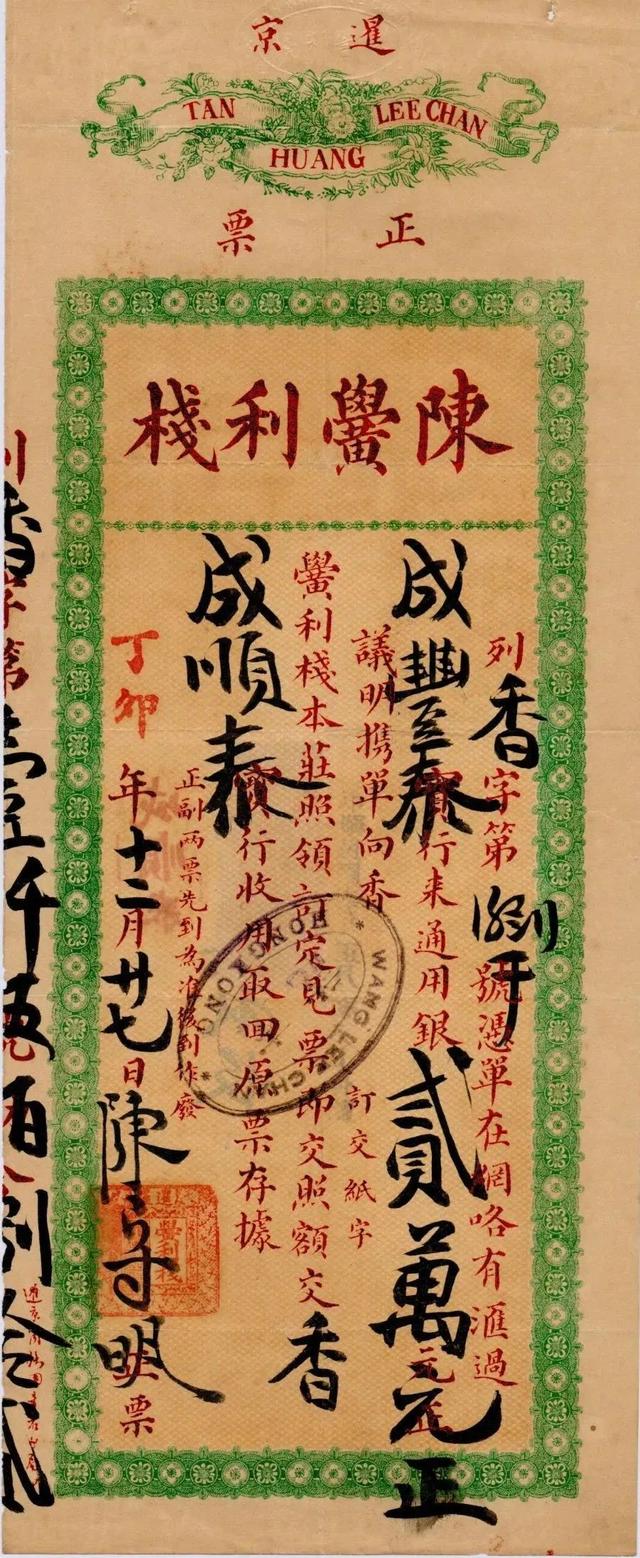 暹京
TAN LEE CHAN
HUANG
正票
陳黌利棧
列香字第 號憑單在網咯有滙過
成豐泰寶行來通用銀貳萬元正
議明携單向香
訂交紙字
黌利棧本莊照領訂定見票即交照額交香
成順泰寶行收用取回原票存據
正副两票先到為准後到作廢
丁卯年十二月廿七日陳守明 票
WANG LEE CHAN
HONGKONG
黌利棧
香字第 千伍佰捌拾貳